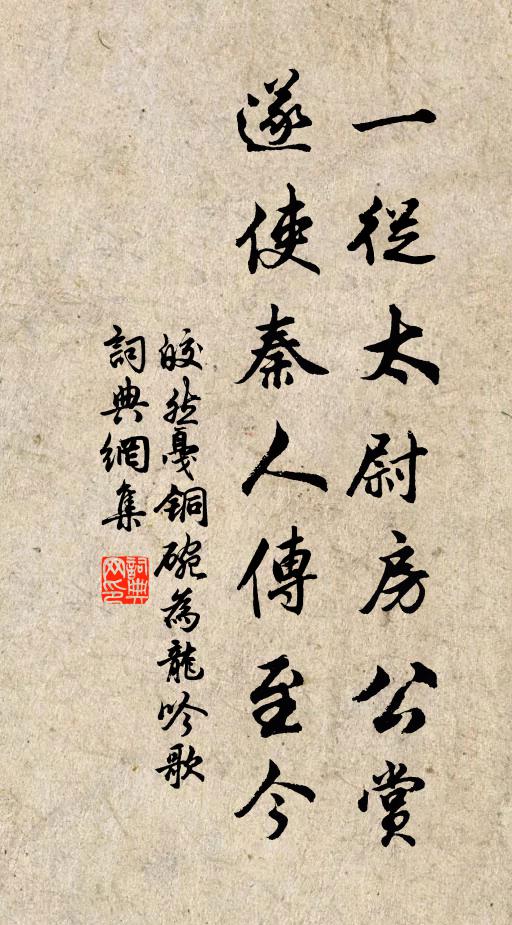 一從太尉房公賞
遂使秦人傳至今
皎然戛銅碗為龍吟歌
詞典網集
詞典
网印